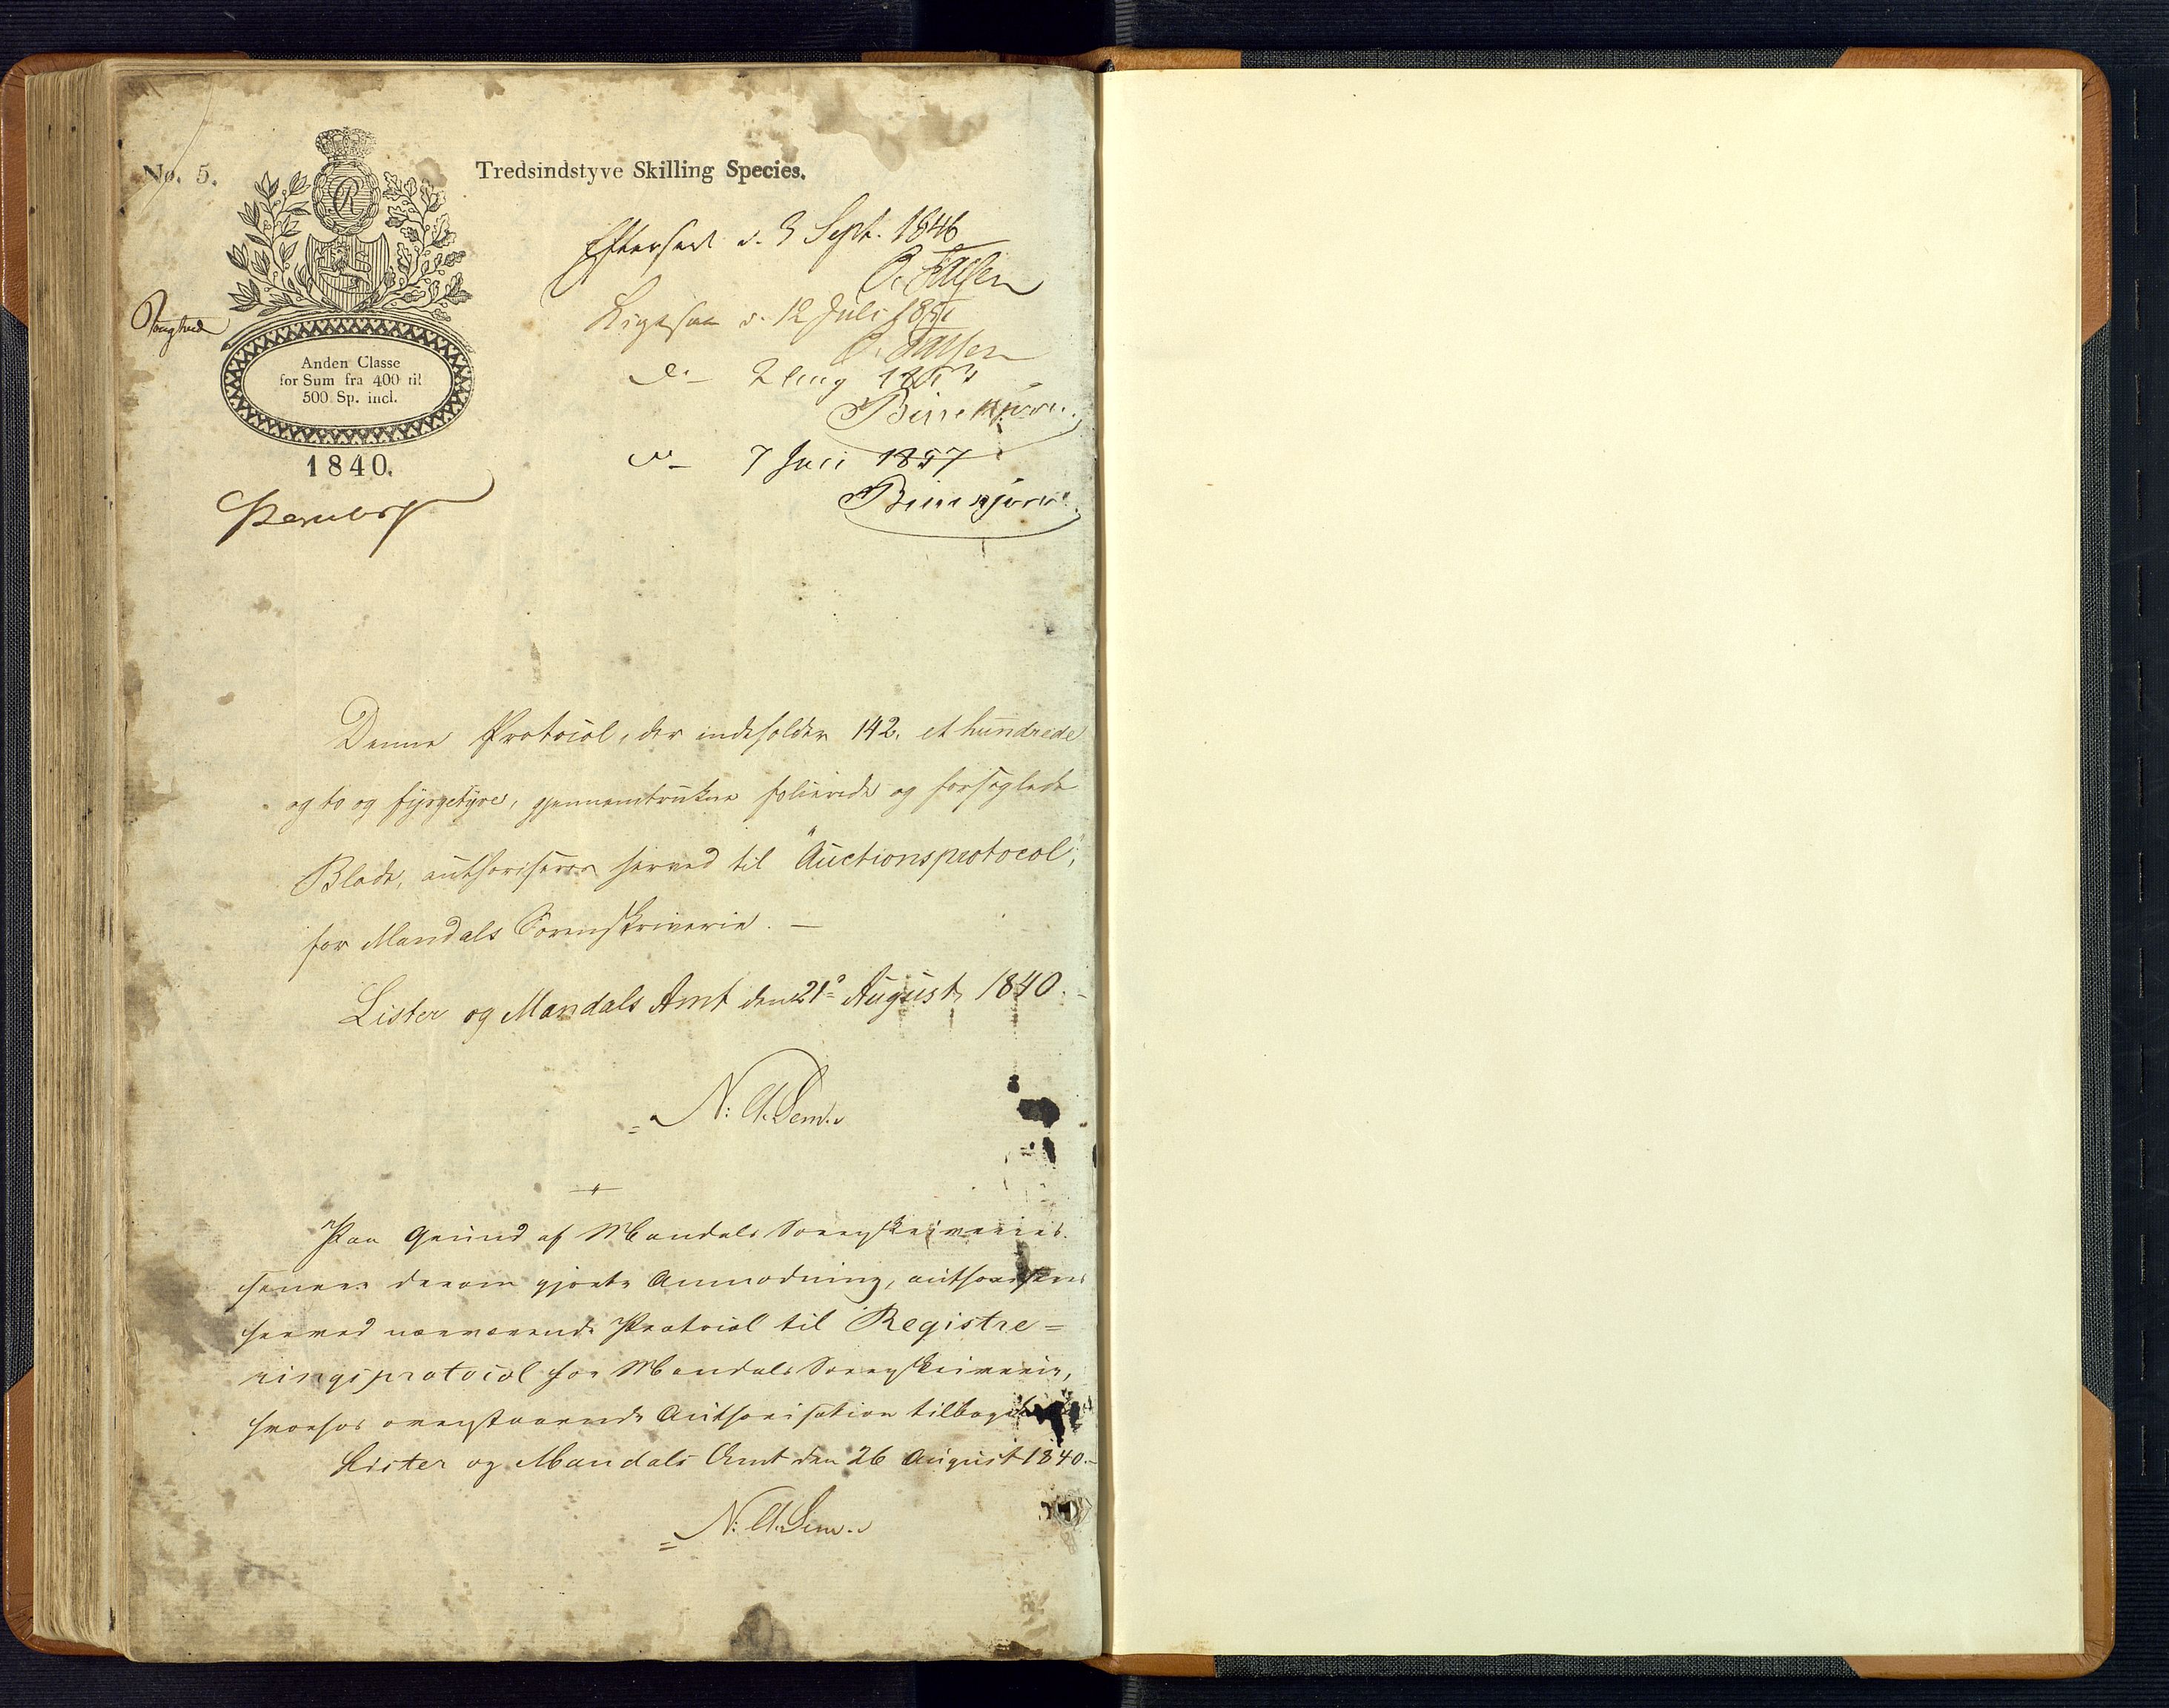 No. 5.
Tredsindstyve Skilling Species.
R
Anden Classe
for Sum fra 400 til
500 Sp. incl.
1840.
Efterseet d. 3 Sept. 1846
Ligesaa d. 12 Juli 1851
do 2 Aug 1853
do 7 Juli 1857
Denne Protocol, der indeholder 142, et hundrede
og to og fyrgetyve, gjennemtrukne folierede og forseglede
Blade, authoriseres herved til "Auctionsprotocol",
for Mandals Sorenskriverie. —
Lister og Mandals Amt den 21de August 1840. -
N: A. Sem.
Paa Grund af Mandals Sorenskriveries
senere derom gjorte Anmodning, authoriseres
herved nærværende Protocol til Registre=
ringsprotocol for Mandals Sorenskriverie,
hvorfor ovenstaaende Authorisation
Lister og Mandals Amt den 26 August 1840. -
N: A. Sem.